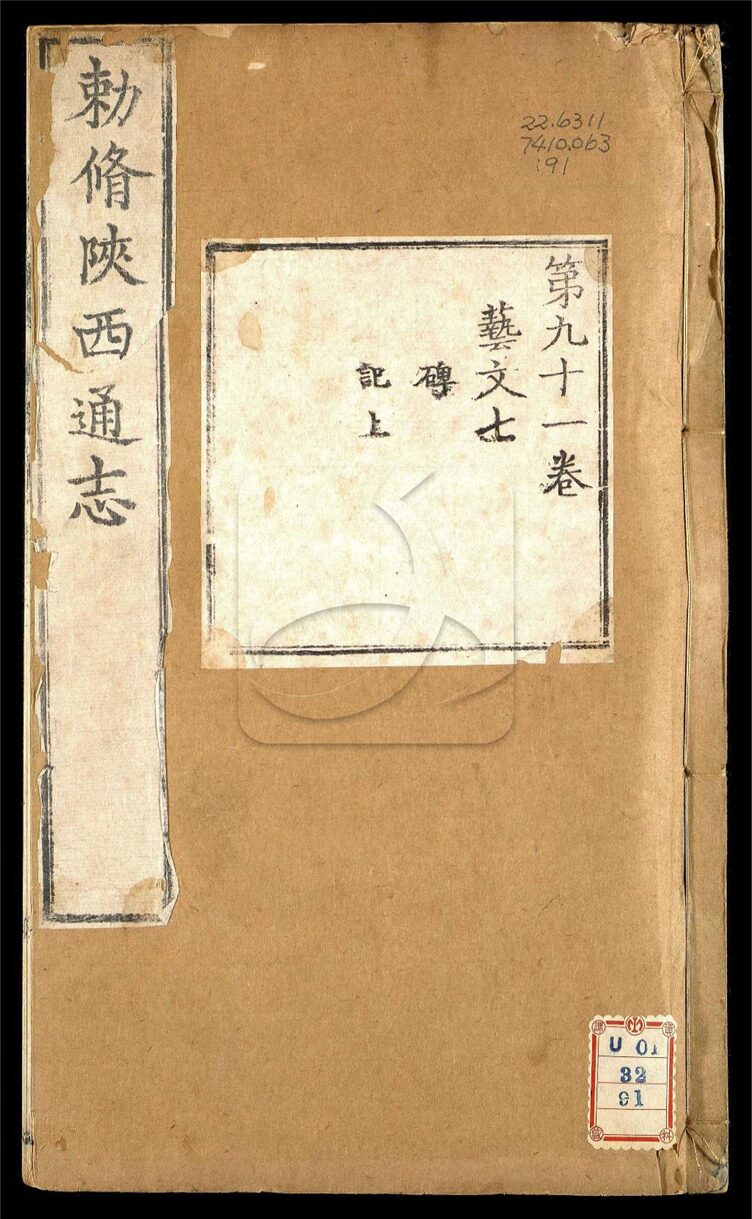 22.6311
7410.063
:91
第九十一卷
藝文七
碑
記上
勅脩陝西通志
U 01
32
91